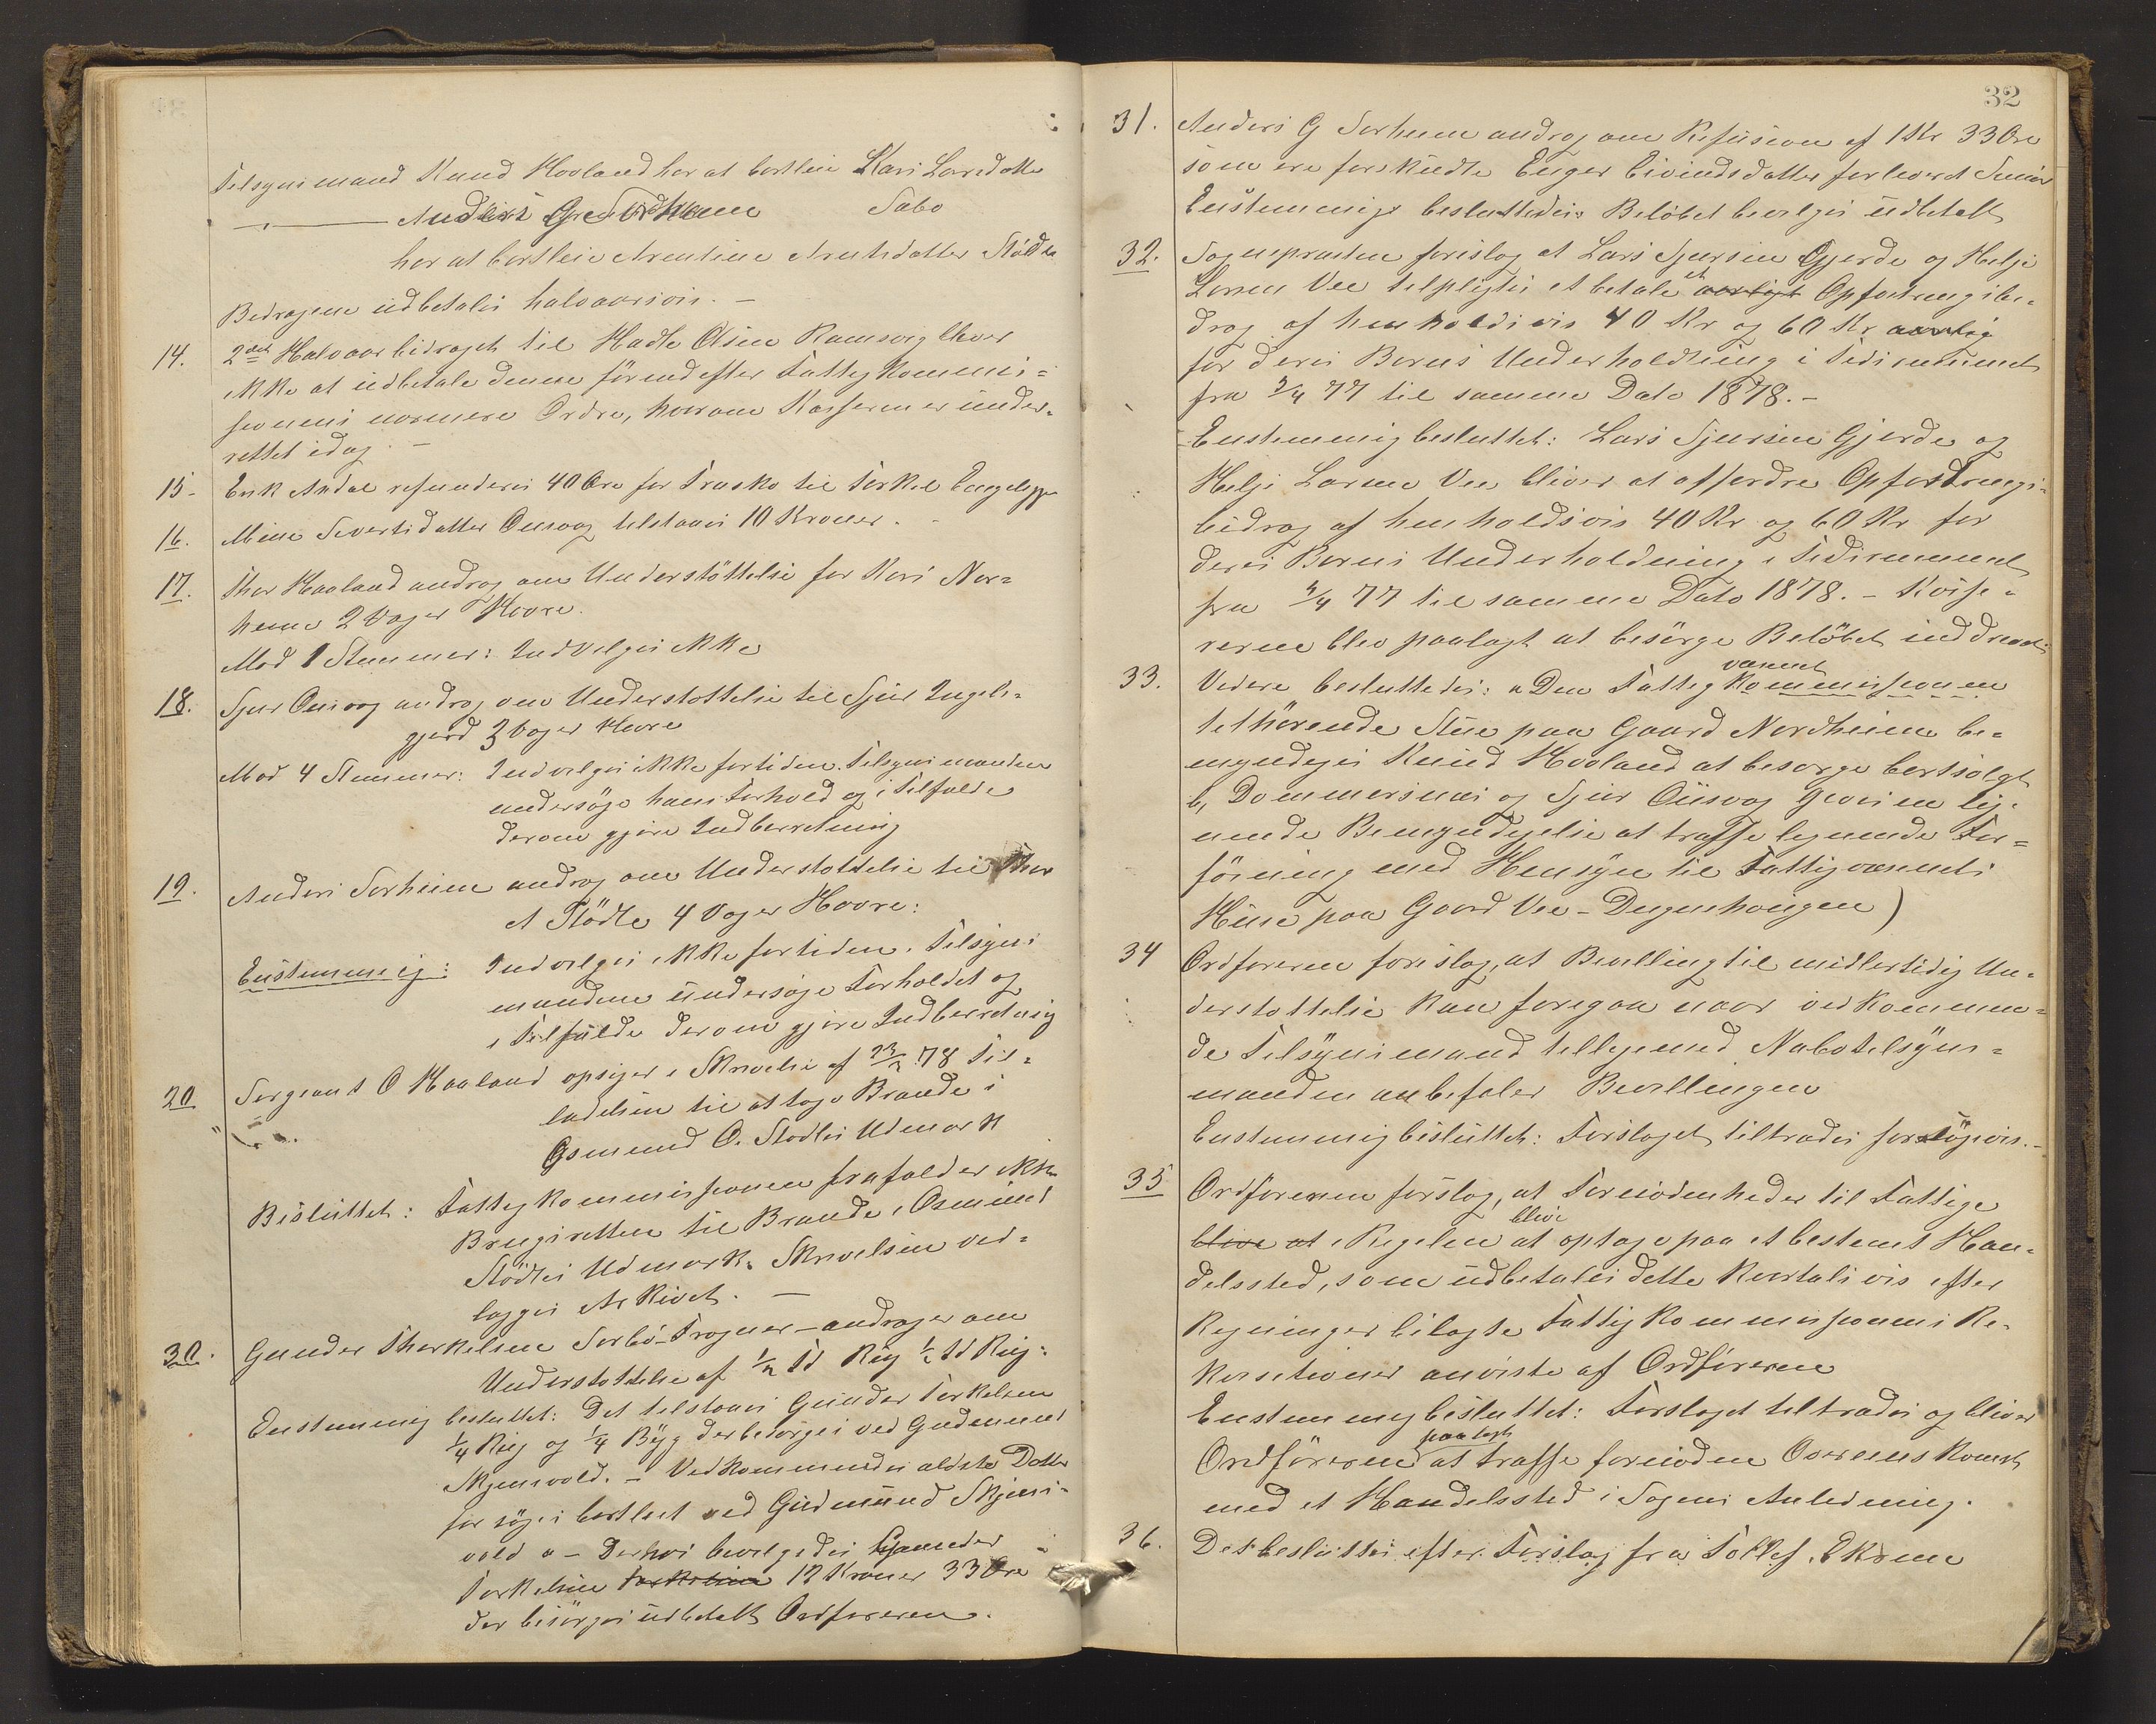 Tilsynsmand Knud Hovland har at bortleie Kari Larsdatter
— " — Anders G Sørheim Sabø
har at bortleie Arentine Arntsdatter Stødle
Bidragene udbetales halvaarsvis. —
14. 2det Halvaarsbidraget til Hadle Olsen Ramsvig bliver
ikke at udbetale denne førend efter Fattigkommis=
sionens nærmere Ordre, hvorom Kassereren er under=
rettet idag. —
15. Erik Andal refunderes 40 Øre for Træsko til Torkel
16. Mine Sivertsdatter Ønsvaag tilstaaes 10 Kroner.
17. Thor Haaland androg om Understøttelse for Kari Nor=
heim 2 Vager Havre.
Mod 1 Stemmer: Indvilges ikke
18. Sjur Ønsvaag androg om Understøttelse til Sjur Ingebr=
gjerd 3 Vager Havre
Mod 4 Stemmer: Indvilges ikke fortiden. Tilsynsmanden
undersøge hans Forhold og i Tilfælde
derom gjøre Indberetning
19. Anders Sørheim androg om Understøttelse til Thor
A Stødle 4 Vager Havre:
Enstemmig: Indvilges ikke fortiden. Tilsyns
manden undersøge Forholdet og
i Tilfælde derom gjøre Indberetning
20 Sergeant O Haaland opsiger i Skrivelse af 23/2 78 Til=
ladelsen til at tage Brænde i
Osmund O. Stødles Udmark
Besluttet: Fattigkommissionen frafalder ikke
Brugsretten til Brænde i Osmund
Stødles Udmark. Skrivelsen ved=
lægges Arkivet. —
30. Gunder Thorkelsen Sørbø-Trogner- andrager om
Understøttelse af 1/2 Td Rug 1/2 Td Rug:
Enstemmig besluttet: Det tilstaaes Gunder Torkelsen
1/4 Rug og 1/4 Byg der besørges ved Gudmund
Skjensvold. — Vedkommendes ældste Datter
forsøges bortleiet ved Gudmund Skjens=
vold — Derhos bevilgedes Gunder
Torkelsen Torkelsen 12 Kroner 33 Øre
der besørges udbetalt Ordføreren.
32
31. Anders G Sørheim androg om Refusion af 1 Kr 33 Øre
som ere forskudte Enger Eivindsdatter for leveret
Enstemmigt besluttedes: Beløbet bevilges udbetalt
32. Sognepresten foreslog at Lars Sjursen Gjerde og Helje
Larsen Vee tilpligtes at betale et aarligt Opfostringsbi=
drag af henholdsvis 40 Kr og 60 Kr aarlig
for deres Børns Underholdning i Tidsrummet
fra 2/4 77 til samme Dato 1878. —
Enstemmig besluttet: Lars Sjursen Gjerde og
Helje Larsen Vee bliver at affordre Opfostrings=
bidrag af henholdsvis 40 Kr og 60 Kr for
deres Børns Underholdning i Tidsrummet
fra 2/4 77 til samme Dato 1878. — Kasse=
reren blev paalagt at besørge Beløbet inddrevet
33. Videre besluttedes: a Den Fattigkommissionen væsenet
tilhørende Stue paa Gaard Nordheim be=
myndiges Knud Hovland at besørge bortsolgt
b, Dommersnes og Sjur Ønsvaag gives en lig=
nende Bemyndigelse at træffe lignende For=
føining med Hensyn til Fattigvæsenets
Huse paa Gaard Vee - Dugenhaugen)
34 Ordføreren foreslog, at Bevilling til midlertidig Un=
derstøttelse kan foregaa naar vedkommen=
de Tilsynsmand tilligemed Nabotilsyns=
manden anbefaler Bevillingen
Enstemmig besluttet: Forslaget tiltrædes forsøgsvis. —
35 Ordføreren forslog, at Fornødenheder til Fattige
blive at i Regelen blive at optage paa et bestemt Han=
delssted, som udbetales dette kvartalsvis efter
Regninger bilagte Fattigkommissionens Re=
kvisitioner anviste af Ordføreren
Enstemmig besluttet: Forslaget tiltrædes og bliver
Ordføreren paalagt at træffe fornøden Overenskomst
med et Handelssted i Sagens Anledning.
36. Det besluttes efter Forslag fra Tollef Ekrene